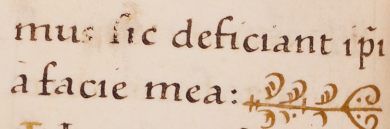 mus sic deficiant ip̄i
a facie mea: